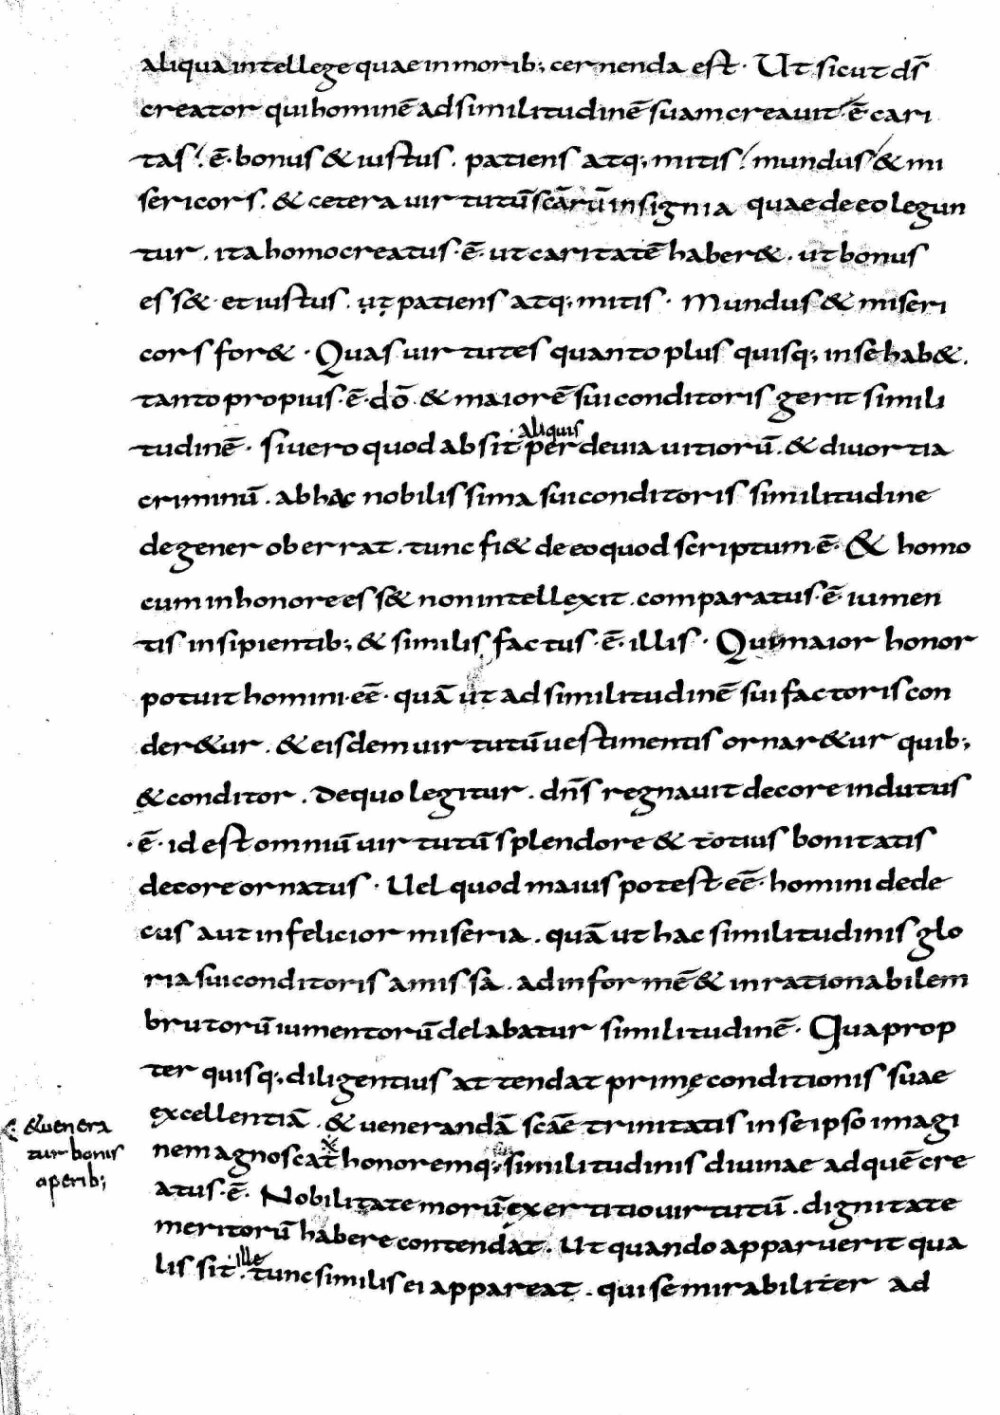 aliqua intellege quae in morib; cernenda est · Ut sicut d̄s
creator qui hominē ad similitudinē suam creavit · ē cari
tas · ē · bonus & iustus . patiens atq; mitis · mundus & mi
sericors . & cetera uirtutū scārū insignia quae de eo legun
tur . ita homo creatus · ē · ut caritatē haber& · ut bonus
ess& · et iustus . ut patiens atq; mitis · Mundus & miseri
cors for& · Quas uirtutes quanto plus quisq; in se hab& .
tanto propius · ē · dō & maiorē sui conditoris gerit simili
tudinē · si uero quod absit aliquis per deuia uitiorū . & diuortia
criminū . ab hac nobilissima sui conditoris similitudine
degener oberrat . tunc fi& de eo quod scriptum ē · & homo
cum in honore ess& non intellexit . comparatus · ē · iumen
tis insipientib; & similis factus · ē · illis · Qui maior honor
potuit homini · eē · quā ut ad similitudinē sui factoris con
der&ur . & eisdem uirtutū uestimentis ornar&ur quib;
& conditor . De quo legitur . dn̄s regnauit decore indutus
· ē · id est omniū uirtutū splendore & totius bonitatis
decore ornatus · Uel quod maius potest · eē · homini dede
cus aut infelicior miseria . quā ut hac similitudinis glo
ria sui conditoris amissa . ad informē & inrationabilem
brutorū iumentorū delabatur similitudinē · Quaprop
ter quisq; diligentius attendat primę conditionis suae
excellentiā . & uenerandā scāe trinitatis in se ipso imagi
nem agnoscat honoremq; similitudinis diuinae ad quē cre
atus · ē · Nobilitate morū exertitio uirtutū . dignitate
meritorū habere contendat . Ut quando apparuerit qua
lis sit · ille tunc similis ei appareat . qui se mirabiliter ad
&uenera
tur bonis
operib;